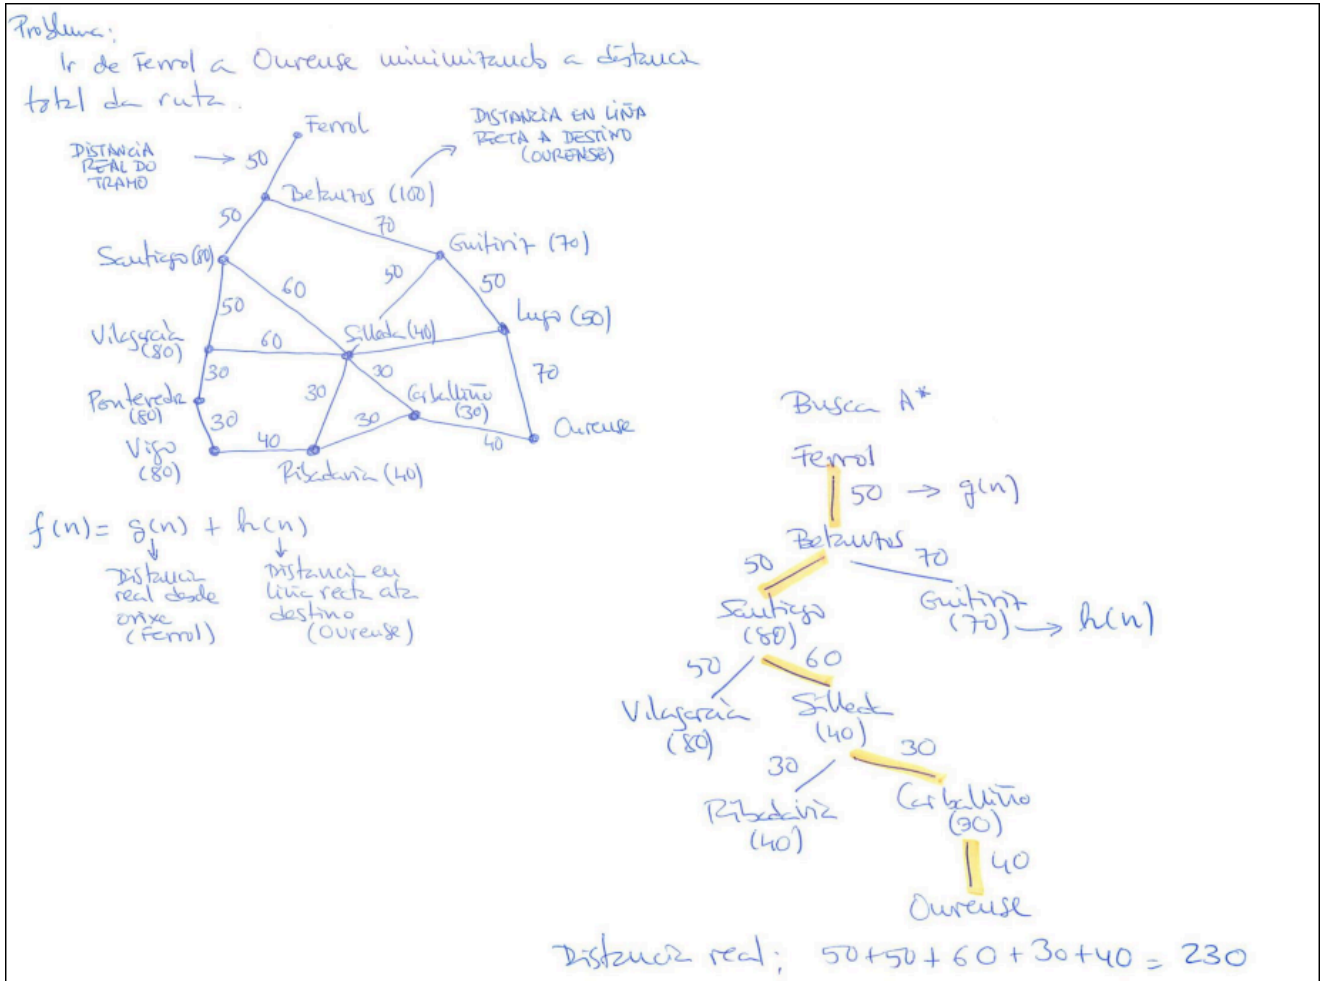 Problema:
Ir de Ferrol a Ourense minimizando a distancia
total da ruta.
Ferrol
DISTANCIA
REAL DO
TRAMO
50
DISTANZIA EN LIÑA
RECTA A DESTINO
(OURENSE)
Betanzos (100)
50
70
Santiago (80)
Guitiriz (70)
60
50
50
50
Lugo (50)
Vilagarcia
(80)
60
Silleda (40)
30
30
30
70
Pontevedra
(80)
Carballiño
(30)
30
30
Vigo
(80)
40
Ribadavia (40)
40
Ourense
f(n) = g(n) + h(n)
Distancia
real desde
orixe
(Ferrol)
Distancia en
liña recta ata
destino
(Ourense)
Busca A*
Ferrol
50 → g(n)
Betanzos
50
70
Santiago
(80)
Guitiriz
(70) → h(n)
50
60
Vilagarcia
(80)
Silleda
(40)
30
30
Ribadavia
(40)
Carballiño
(30)
40
Ourense
Distancia real: 50+50+60+30+40 = 230